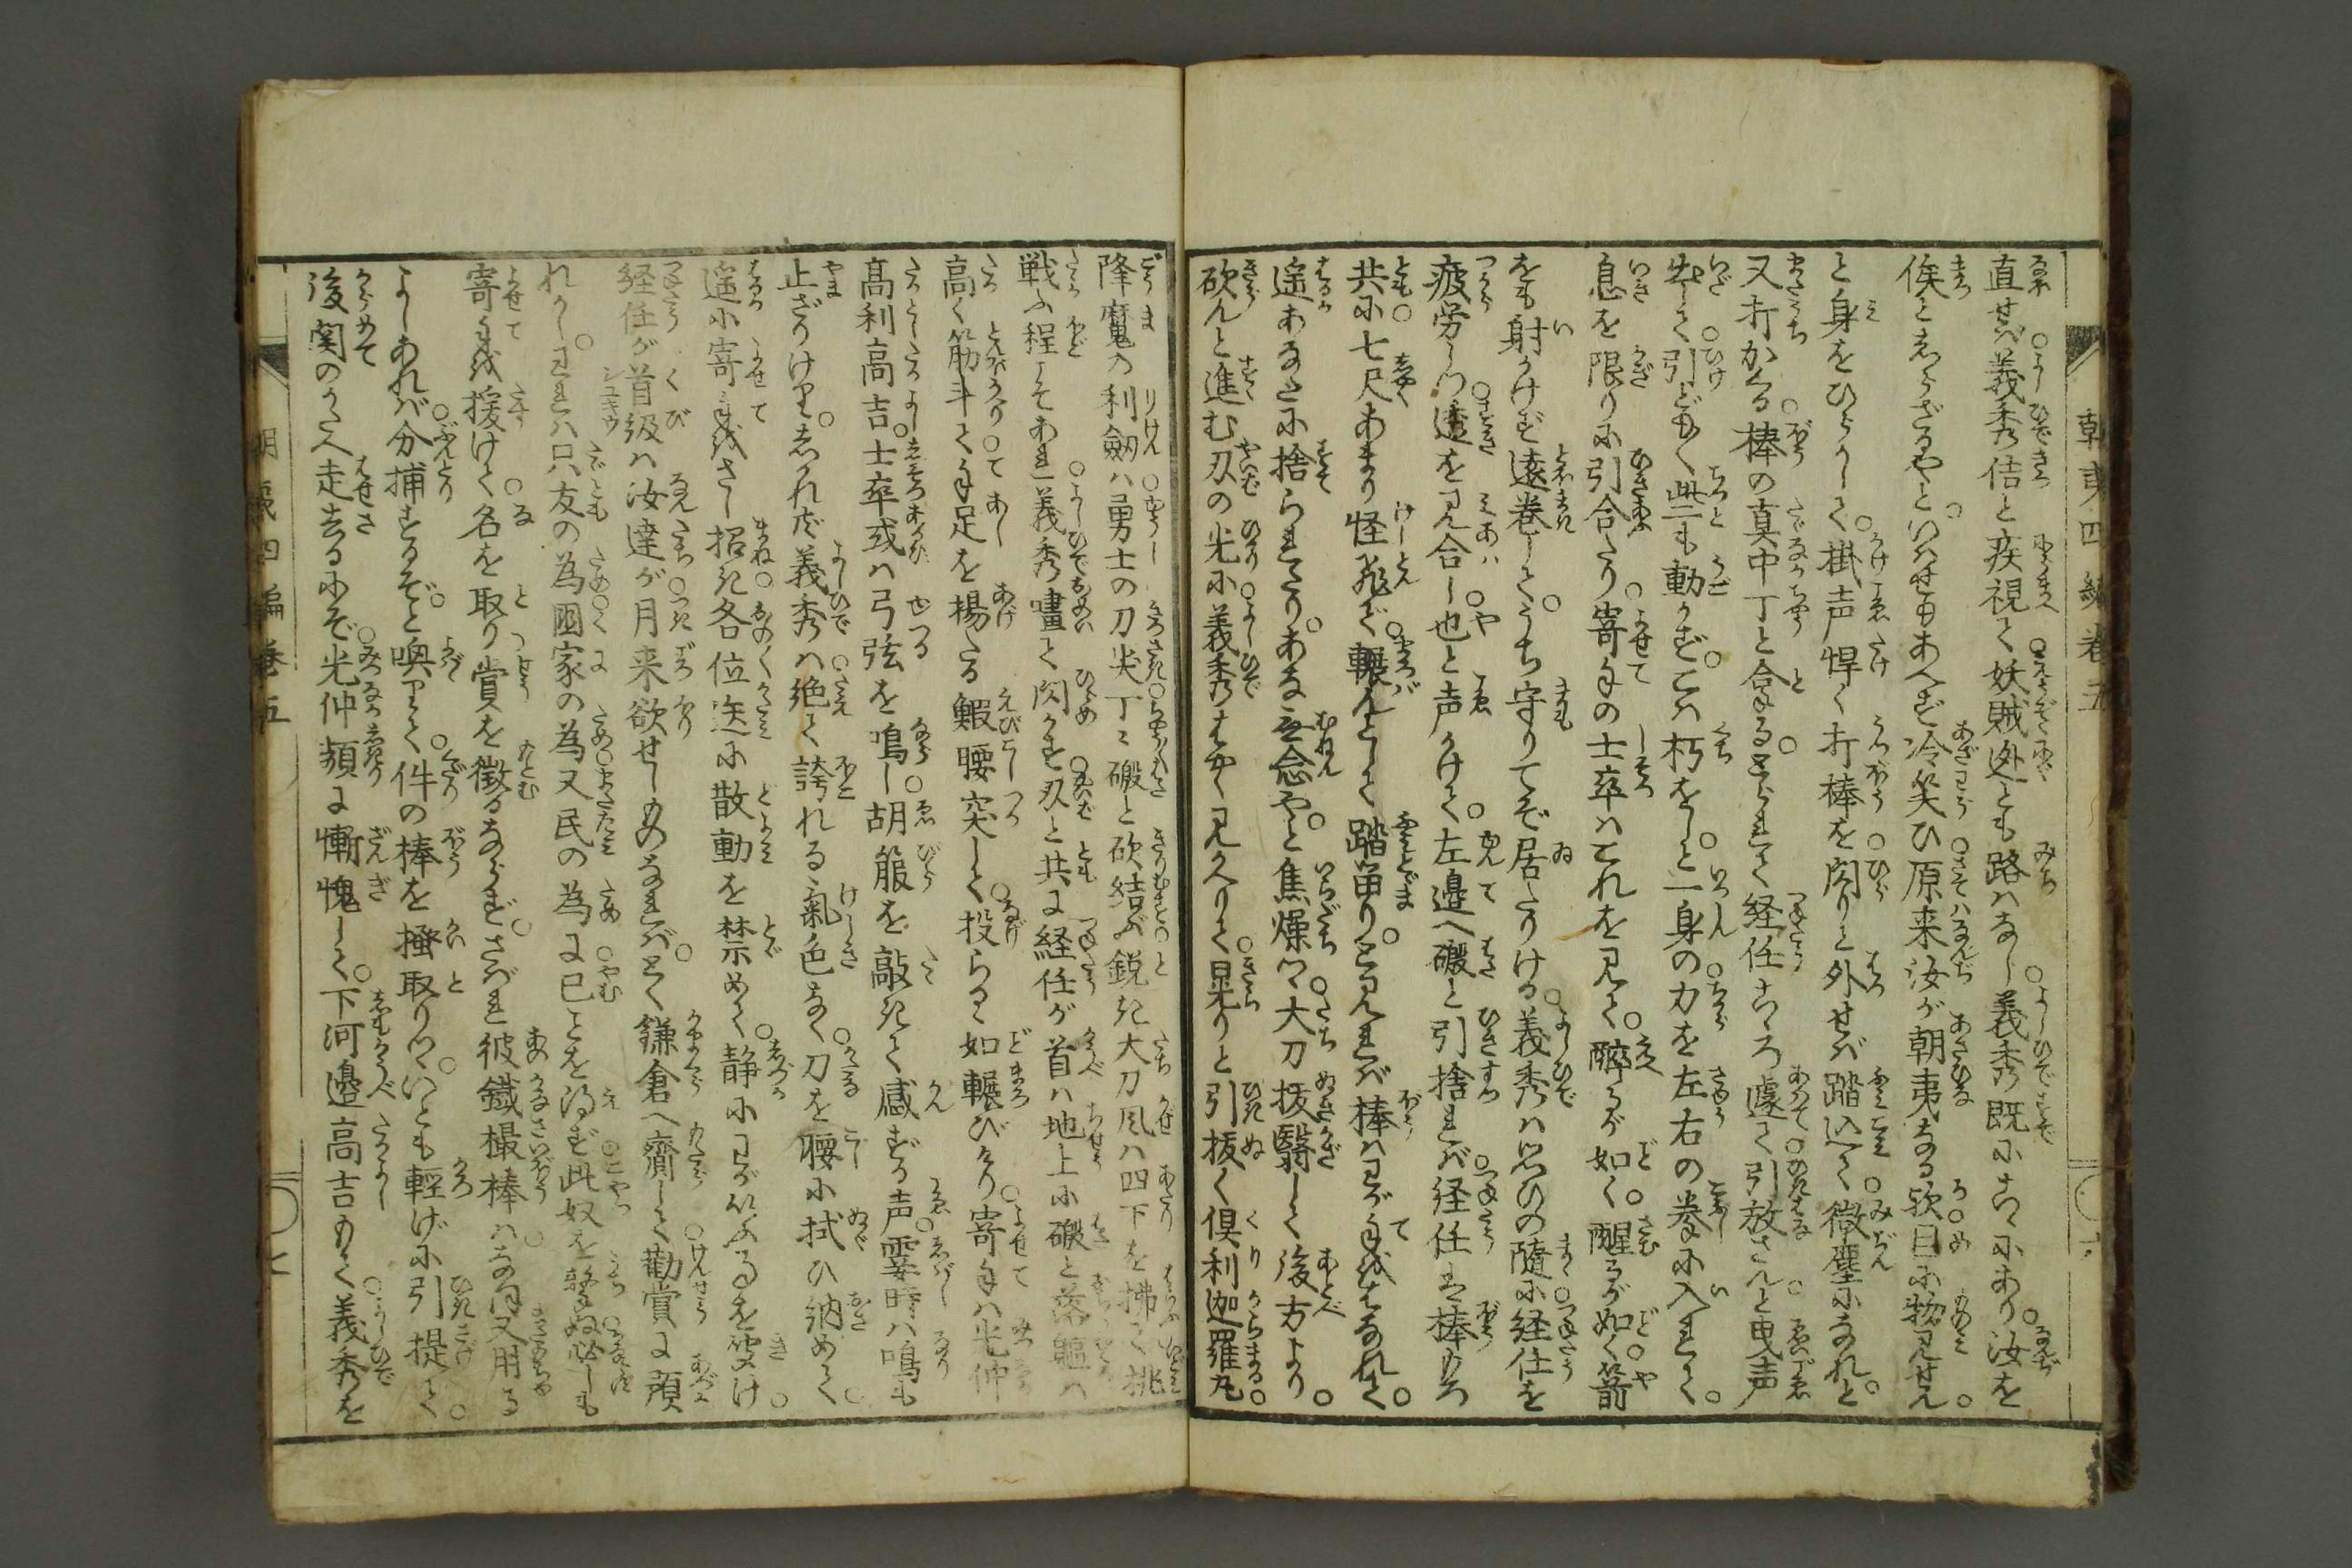 朝夷四編巻五
直せば義秀佶と疾視て妖賊迯とも路はなし義秀既にこゝにあり。汝を
俟としらざるやと。いはせもあへず冷笑ひ原来汝が朝夷なる歟目に物見せん
と身をひらかして。掛声悍く打棒を閃りと外せば踏込て微塵になれと
又打かくる棒の真中丁と合る。とられて経任こゝろ遽て引放さんと曳声
出して引ども〳〵些も動かず。こは朽をしと一身の力を左右の拳に入れて。
息を限りに引合たり寄手の士卒はこれを見て。酔るが如く。醒るが如く箭
をも射かけず遠巻して。うち守りてぞ居たりける。義秀は思ひの随に経任を
疲労しつ透を見合し也と声かけて。左邉へ礑と引捨れば経任は棒もろ
共に七尺あまり怪飛で。輾んとして踏畄り。とられば棒はわが手をはなれて。
遥あなたに捨られたり。あな無念やと。焦燥つ大刀抜翳して後方より
砍んと進む刄の光に義秀はやく見かへりて晃りと引抜く倶利迦羅丸
降魔の利劔は勇士の刀尖丁々礑と砍結ぶ鋭き大刀風は四下を拂て挑
戦ふ程こそあれ義秀嘯て閃かす刄と共に経任が首は地上に礑と落軀は
高く筋斗て手足を揚たる鰕腰突して。投らるゝ如輾びけり寄手は光仲
高利高吉。士卒或は弓弦を鳴し胡簶を敲きて感ずる声霎時は鳴も
止ざりけり。しかれども義秀は絶て誇れる氣色なく。刀を腰に拭ひ納めて。
遥に寄手をさし招き各位迭に散動を禁めて。静にわがいふよしを聴け。
経任が首級は汝達が月来欲せしものなれば。とく鎌倉へ齎して勧賞に預
れかし。われは只友の為國家の為又民の為に已ことを得ず此奴を撃ぬ必しも
寄手を援けて名を取り賞を徴るならず。さばれ彼鐵撮棒は。なほ又用る
よしあれば分捕するぞと喚りて件の棒を掻取りつ。いとも輕げに引提て。
後関のかたへ走去るにぞ光仲頻に慚愧して。下河邉高吉もて義秀を
朝夷四編巻五